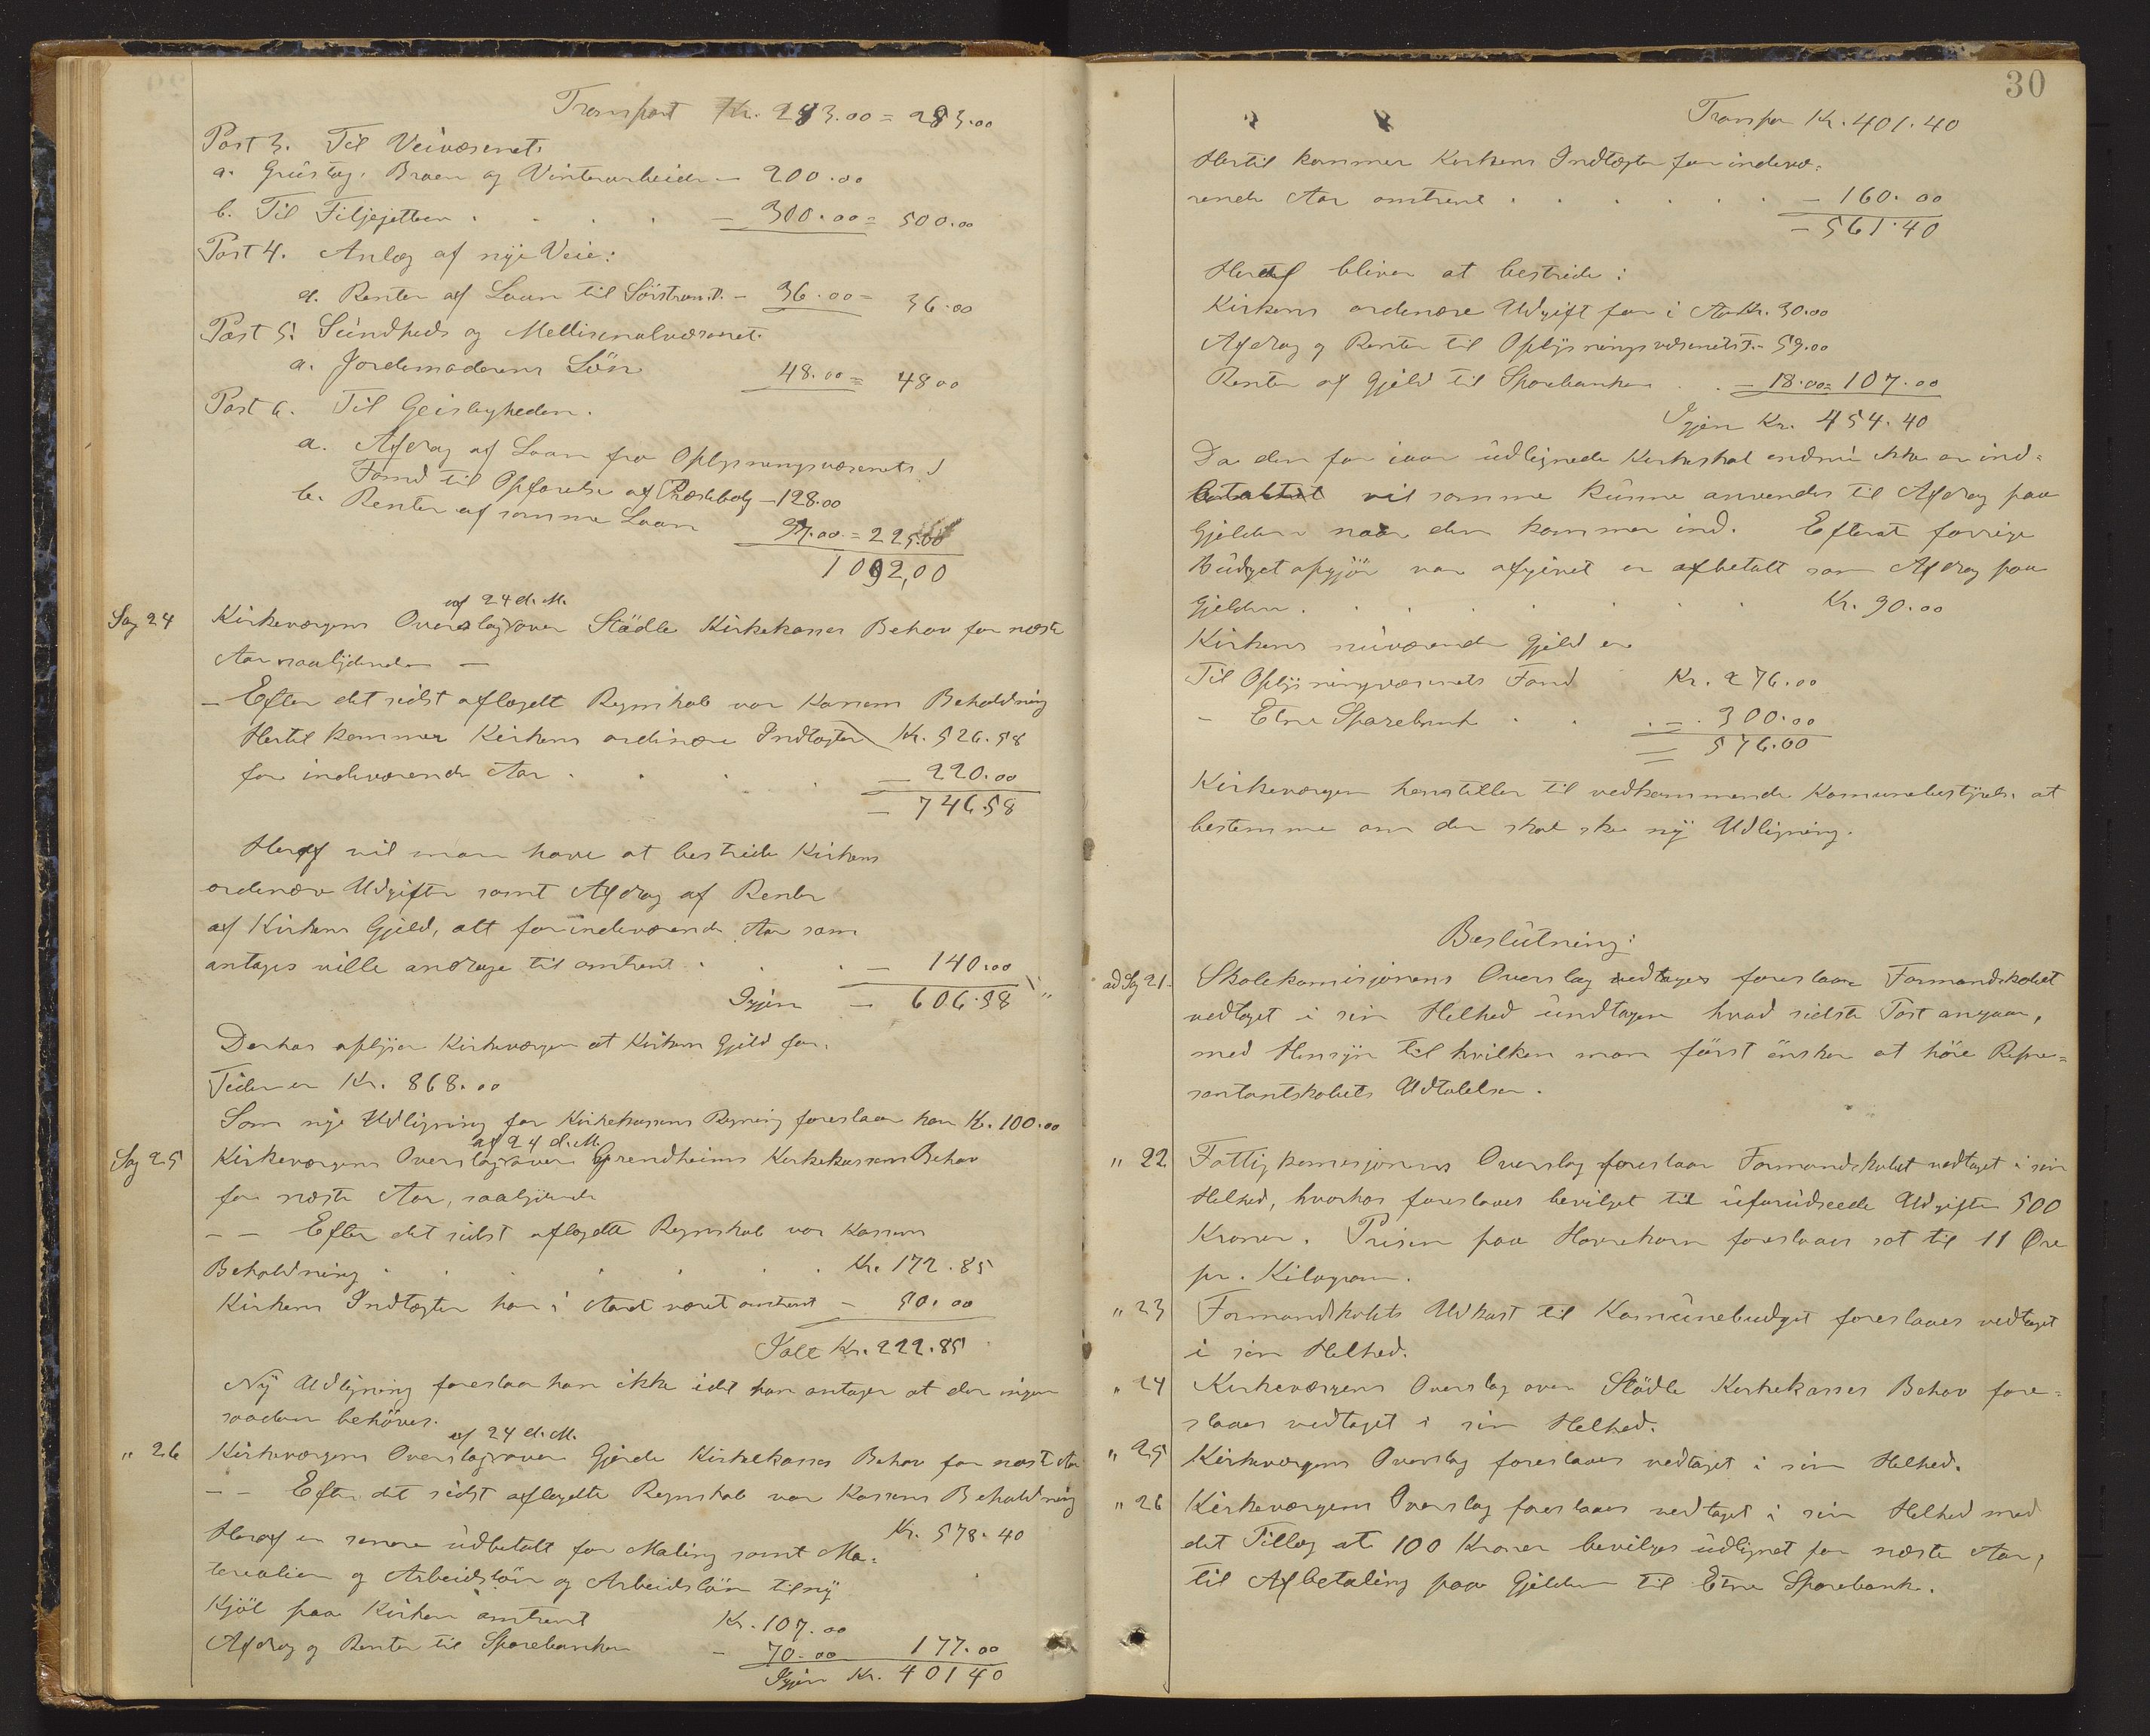 Transport Kr. 283.00 = 283.00
Post 3. Til Veivæsenet
a. Grüstag. Broer og Vinterarbeide — 200.00
b. Til Filjejetteen . . . . — 300.00 = 500.00
Post 4. Anlæg af nye Veie:
a. Renter af Laan til Sörstran.V. — 36.00 = 36.00
Post 5: Sündheds og Mellisenalvæsenet.
a. Jordemoderens Lön 48.00 = 48.00
Post 6. Til Geisligheden.
a. Afdrag af Laan fra Oplysningsvæsenets
Fond til Opførelse af Præstebolg — 128.00
b. Renter af samme Laan 97.00 = 225.00
1092,00
Sag 24 Kirkeværgens Overslag af 24 d.M. over Städle Kirkekasses Behov for næste
Aar saalydende —
— Efter det sidst aflagdt Regnskab var Kassens Beholdning
Hertil kommer Kirkens ordinære Indtægter Kr. 526.58
for indeværende Aar . . . — 220.00
— 746.58
Heraf vil man have at bestride Kirkens
ordenære Udgifter samt Afdrag af Renter
af Kirkens Gjeld, alt for indeværende Aar som
antages ville andrage til omtrent . . . — 140.00
Igjen — 606.58
Derhos oplyser Kirkeværgen at Kirkens Gjeld for
Tiden er Kr. 868.00
Som nye Udligning for Kirkekassens Regning foreslaar han Kr. 100.00
Sag 25 Kirkeværgens Overslag af 24 d.M. over Grendheims Kirkekassens Behov
for næste Aar, saalydende
— — Efter det sidst aflagdte Regnskab var Kassens
Beholdning . . . . . . Kr. 172.85
Kirkens Indtægter har i Aaret været omtrent — 50.00
Ialt Kr. 222.85
Ny Udligning foreslaar han ikke idet han antager at der ingen
saadan behöves.
" 26 Kirkeværgens Overslag af 24 d.M. over Gjerde Kirkekasses Behov for næst Aar
— — Efter det sidst aflagdte Regnskab var Kassens Beholdning
Kr. 578.40
Heraf er senere üdbetalt for Maling samt Ma-
terialier og Arbeidslön og Arbeidslön til ny
Kjöl paa Kirken omtrent Kr. 107.00
Afdrag og Renter til Sparebanken — 70.00 177.00
Igjen Kr. 401 40
30
Transpor Kr. 401.40
Hertil kommer Kirkens Indtægter for indevæ-
rende Aar omtrent . . . . . . — 160.00
— 561.40
Heraf bliver at bestride:
Kirkens ordenære Udgift for i Aar Kr. 30.00
Afdrag og Renter til Oplysningsvæsenets F. — 59.00
Renter af Gjeld til Sparebanken . . — 18.00 = 107.00
Igjen Kr. 454.40
Da den for iaar üdlignede Kirkeskat endnü ikke er ind-
betaltat vil samme künne anvendes til Afdrag paa
Gjelden naar den kommer ind. Efterat forrige
Büdgetopgjör var afgivet er afbetalt som Afdrag paa
Gjelden . . . . . . . Kr. 90.00
Kirkens nüværende Gjeld er
Til Oplysningsvæsenets Fond Kr. 276.00
— Etne Sparebank . . . — 300.00
— 576.00
Kirkeværgen henstiller til vedkommende Komunebestyrelse at
bestemme om der skal ske ny Udligning.
Beslütning:
ad Sag 21. Skolekomisjonens Overslag vedtages foreslaar Formandskabet
vedtaget i sin Helhed ündtagen hvad sidste Post angaar,
med Hensyn til hvilken man först önsker at höre Repre-
sentantskabets Udtalelser.
" 22 Fattigkomisjonens Overslag foreslaar Formandskabet vedtaget i sin
Helhed, hvorhos foreslaaes bevilget til üforüdseede Udgifter 500
Kroner. Prisen paa Havrekorn foreslaaes sat til 11 Øre
pr. Kilogram.
" 23 Formandskabets Udkast til Komünebudget foreslaaes vedtaget
i sin Helhed.
" 24 Kirkeværgens Overslag over Städle Kirkekasses Behov fore-
slaaes vedtaget i sin Helhed.
" 25 Kirkeværgens Overslag foreslaaes vedtaget i sin Helhed.
" 26 Kirkeværgens Overslag foreslaaes vedtaget i sin Helhed med
det Tillæg at 100 Kroner bevilges üdlignet for næste Aar,
til Afbetaling paa Gjelden til Etne Sparebank.